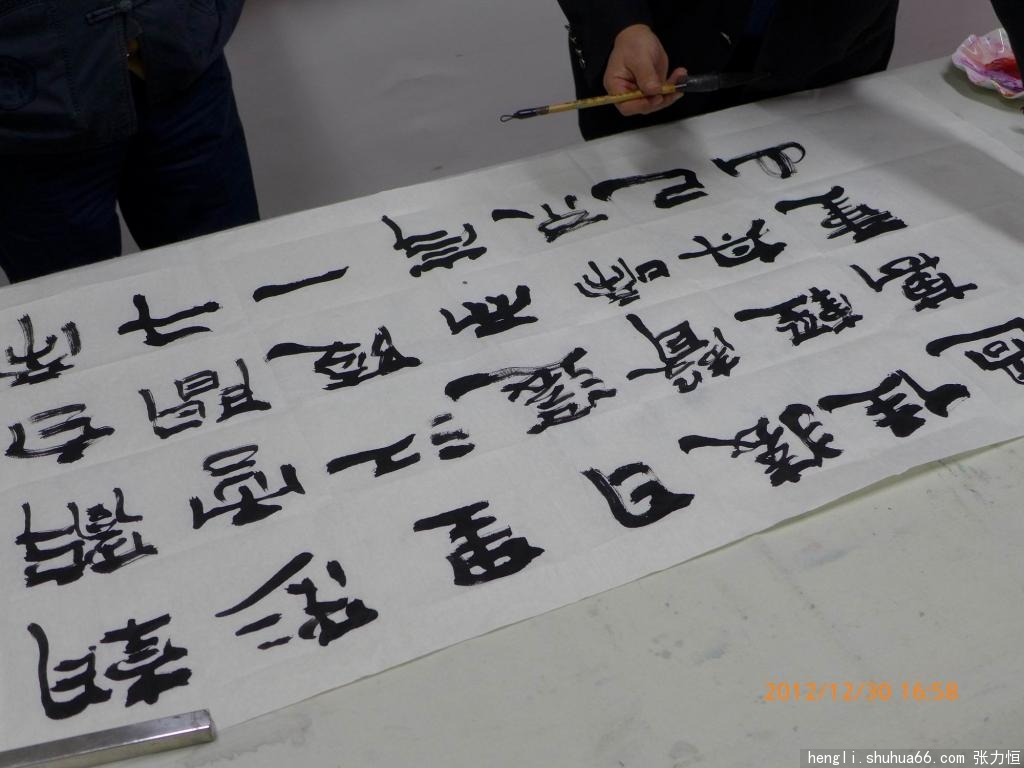 朝辭白帝
彩雲間千
里江陵一
日還兩岸
猿聲啼不
住輕舟已
過萬重山
2012/12/30 16:58
hengli.shuhua66.com 张力恒